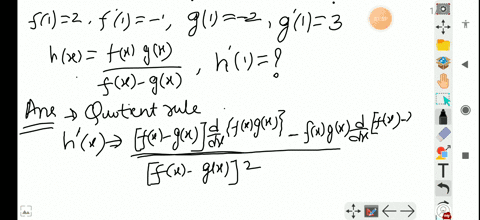 f(1)=2, f'(1)=-1, g(1)=-2, g'(1)=3
h(x)= f(x) g(x) / f(x)-g(x) , h'(1)=?
Ans → Qutient rule
h'(x) → [f(x)-g(x)] d/dx {f(x)g(x)} - f(x)g(x) d/dx [f(x)-
[f(x)- g(x)] 2
T